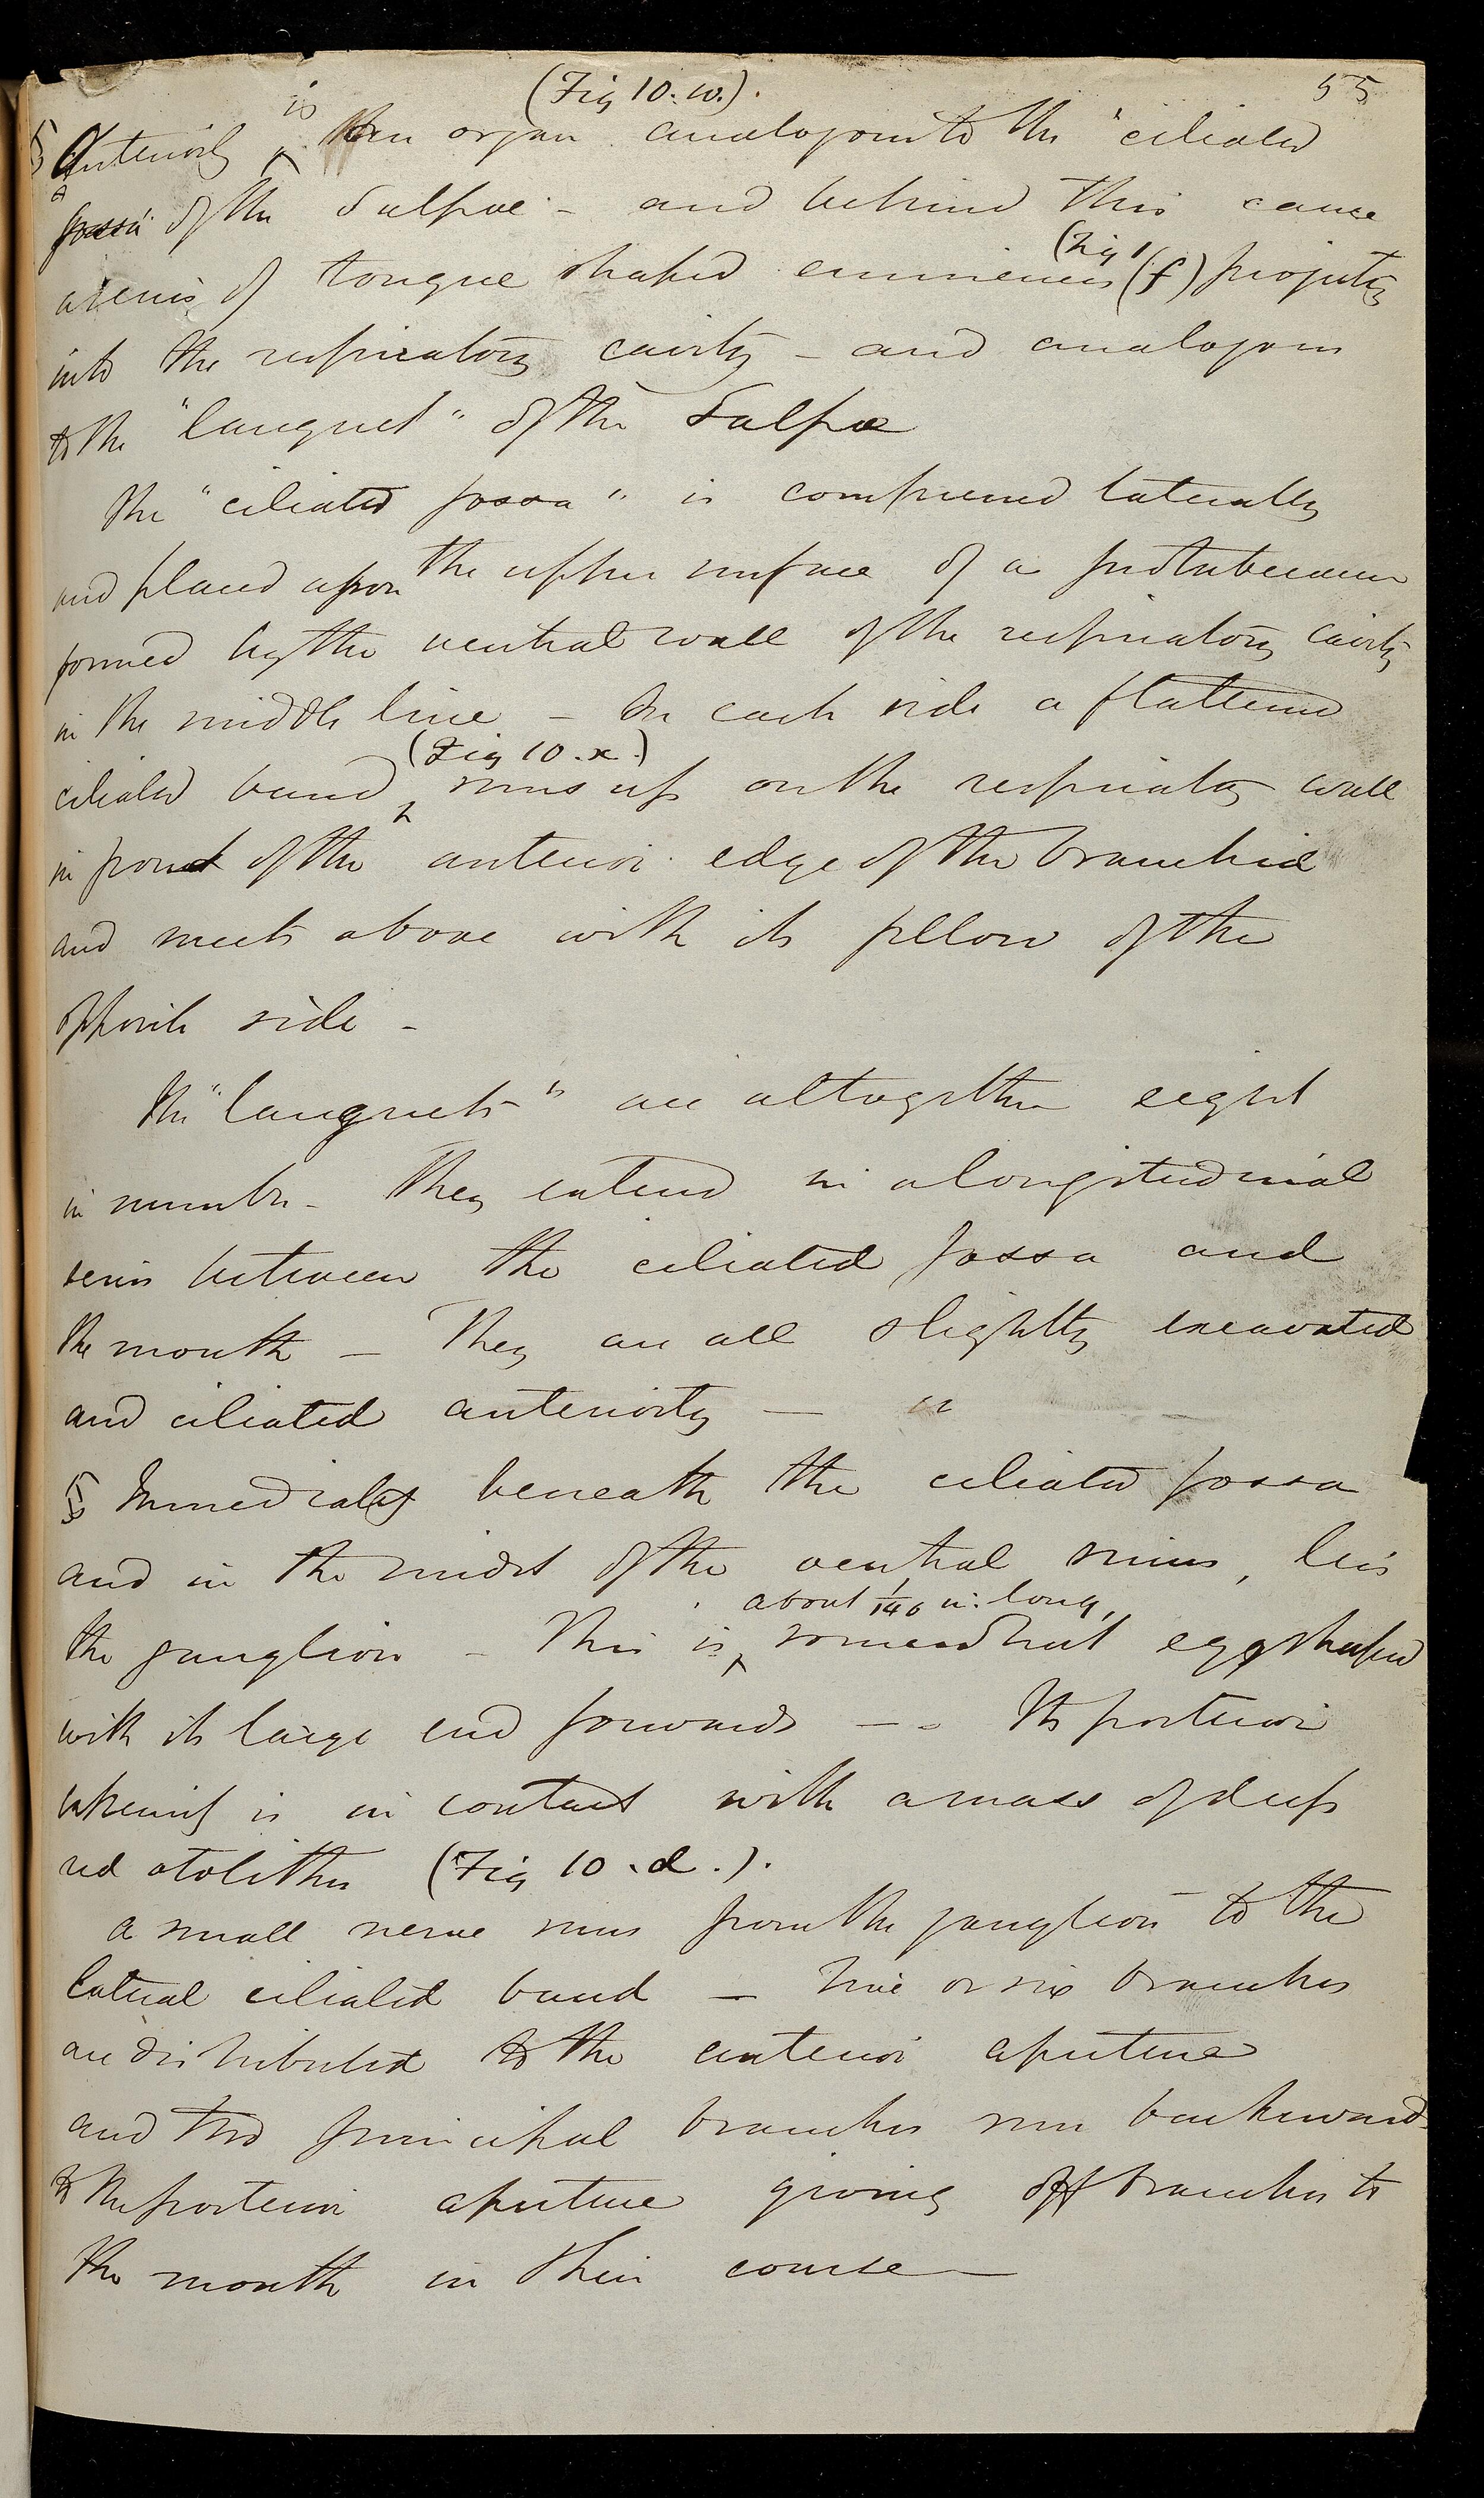 55
is (Fig 10. w.).
§ Anteriorly an organ analogous to the "ciliated
fossa" of the Salpæ - and behind this came
(Fig 1
a series of tongue shaped eminences (f) projecting
into the respiratory cavity - and analogous
to the "languet" of the Salpæ
The "ciliated fossa" is compressed laterally
and placed upon the upper surface of a protuberance
formed by the ventral wall of the respiratory cavity
in the middle line - On each side a flattened
(Fig 10. x.)
ciliated band runs up on the respiratory wall
in front of the anterior edge of the branchiæ
and meets above with its fellow of the
opposite side -
The "languets" are altogether eight
in number - They extend in a longitudinal
series between the ciliated fossa and
the mouth - They are all slightly excavated
and ciliated anteriorly -
§ Immediately beneath the ciliated fossa
and in the midst of the ventral sinus, lies
about 1/140 in: long,
the ganglion - This is somewhat egg shaped
with its large end forwards - - Its posterior
extremity is in contact with a mass of deep
red otolithes (Fig 10. d.).
A small nerve runs from the ganglion to the
lateral ciliated band - five or six branches
are distributed to the anterior aperture
and two principal branches run backward
to the posterior aperture giving off branches to
the mouth in their course -